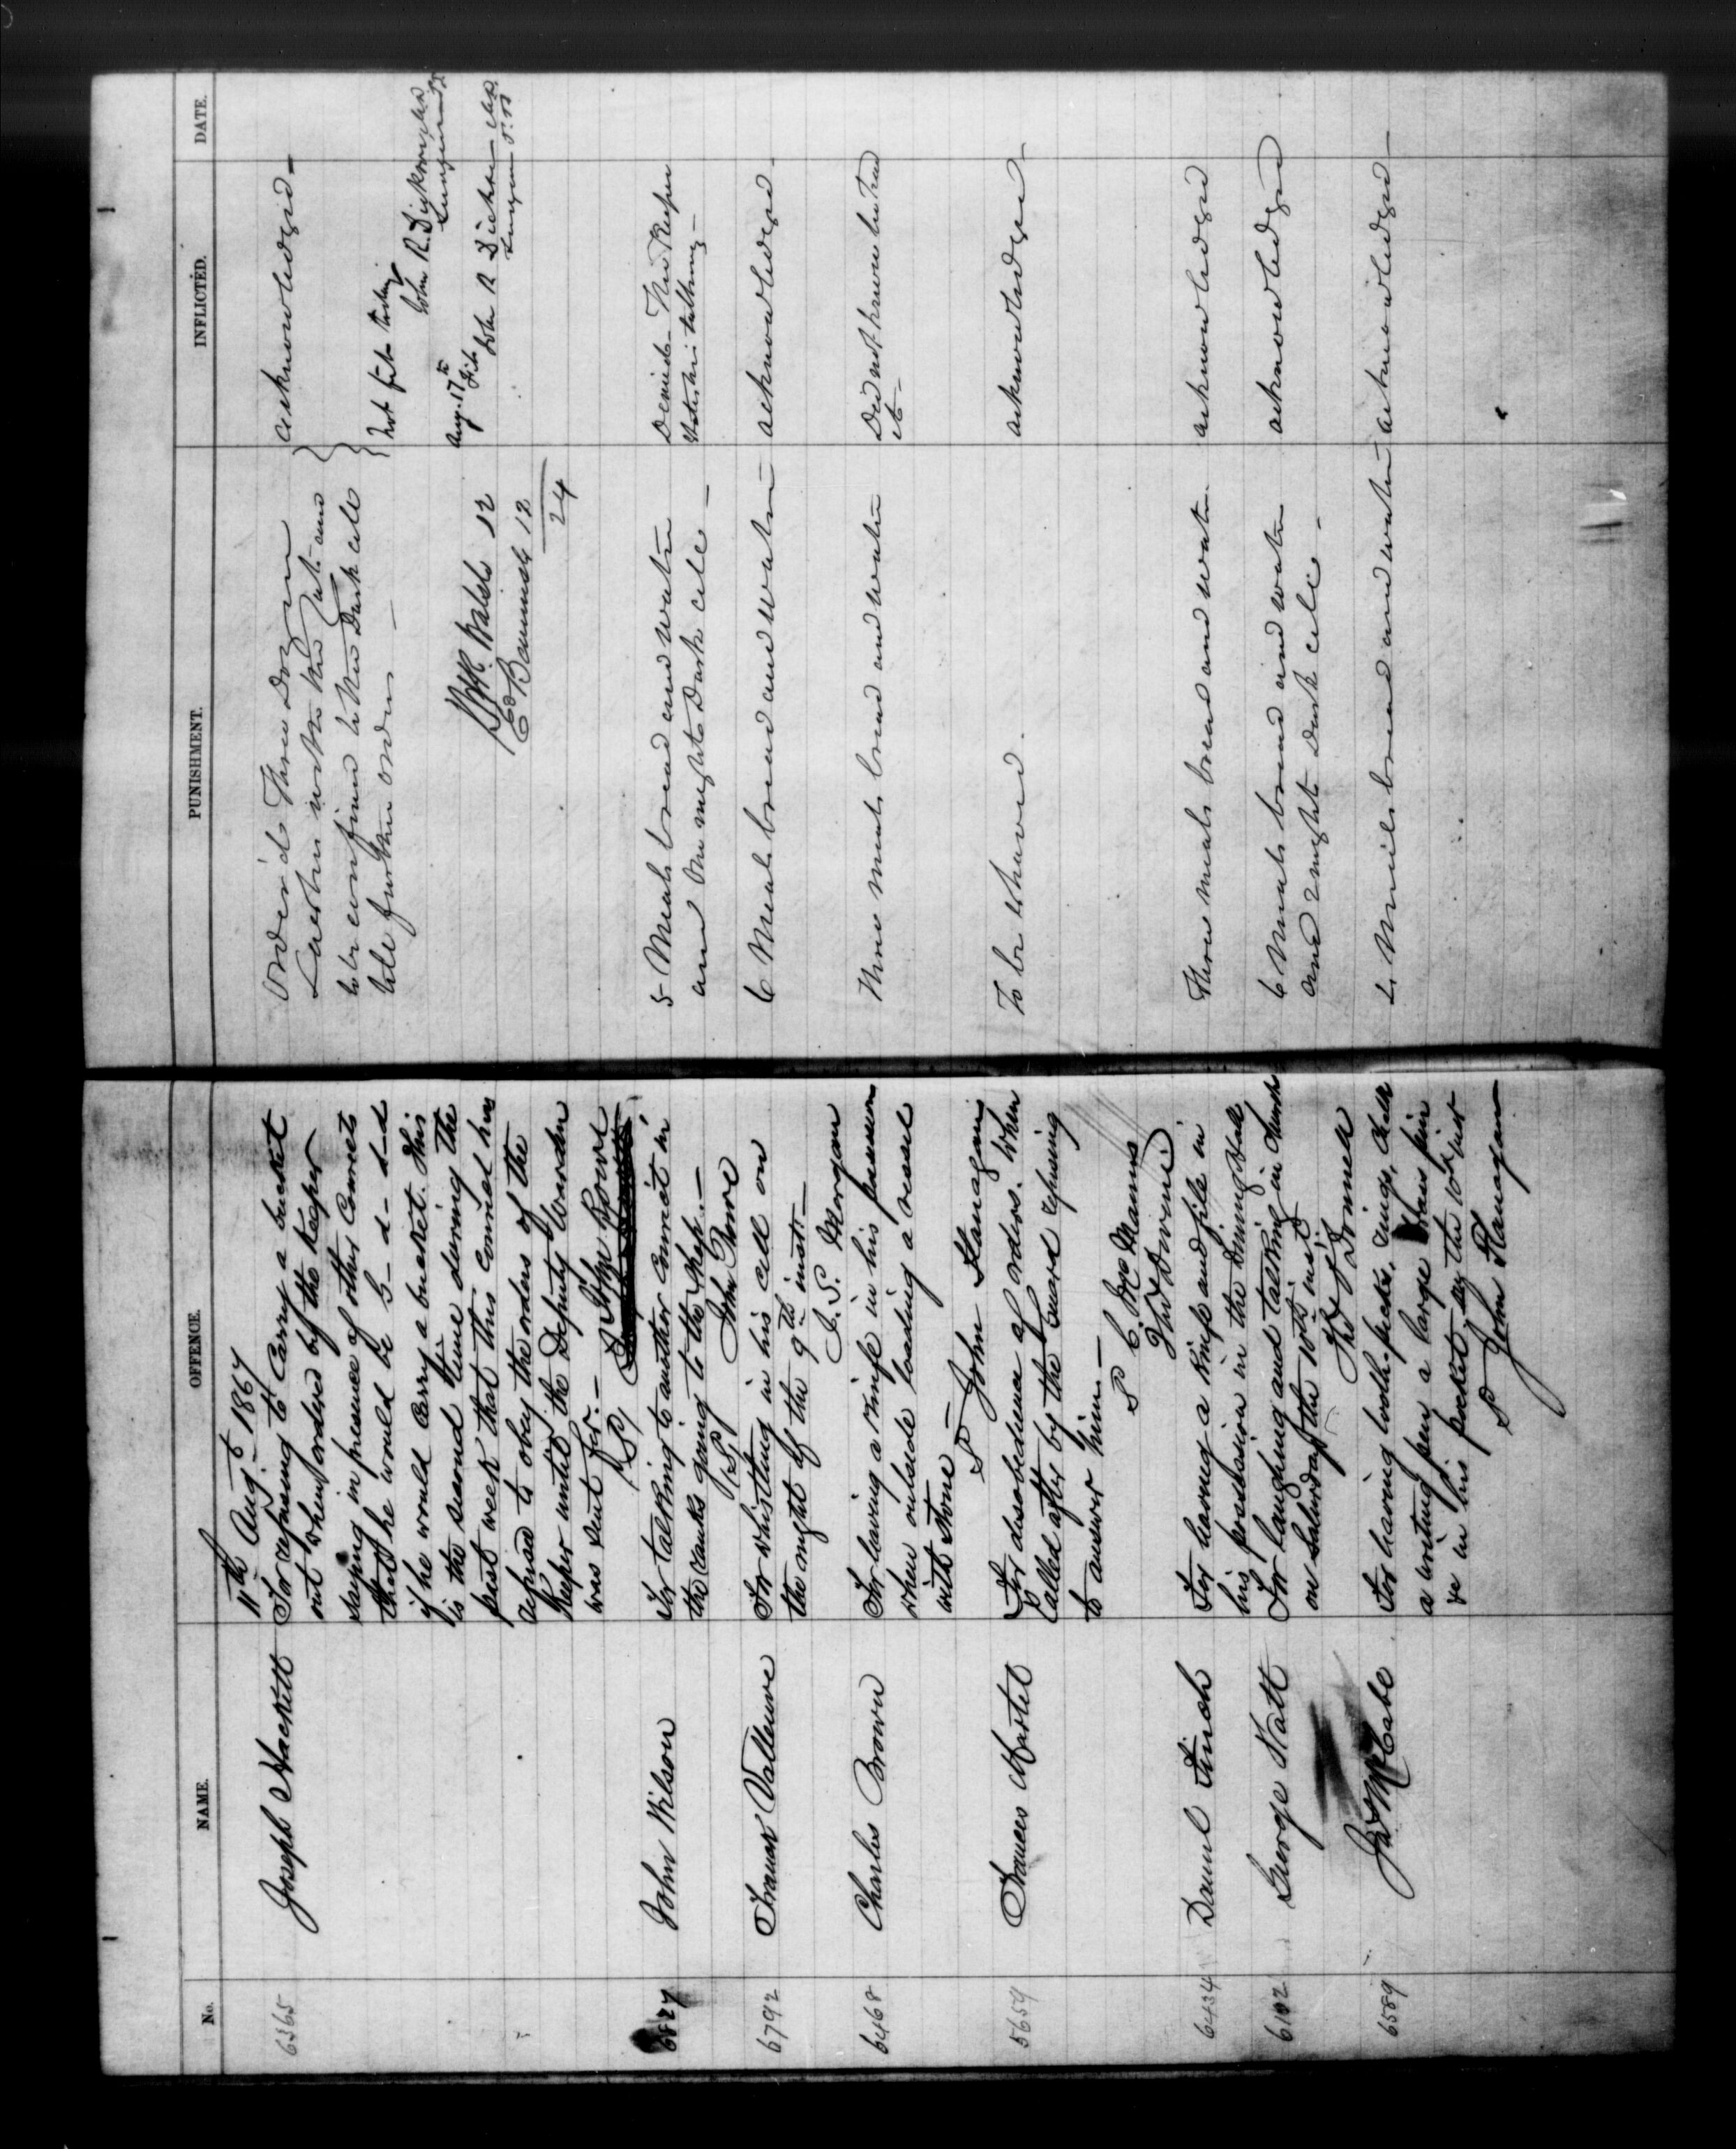 No.
NAME.
OFFENCE.
PUNISHMENT.
INFLICTED.
DATE.
11th Aug. 1867
6365
Joseph Hackett
For refusing to Carry a bucket
out when ordered by the Keeper
saying in presence of other Convicts
that he would be G- d- d-d
if he would carry a bucket. This
is the second time during the
past week that this Convict has
refused to obey the orders of the
Keeper until the Deputy Warden
was sent for.-
John Rowe
Order'd Three Dozen
Lashes with the Cat and
to be confined to the Dark cell
till further orders -
acknowledged -
Not fit
John R. Dickson MD
Surgeon
Aug. 17th
Fit
John R Dickson MD
Surgeon
Walsh 12
12
24
John Wilson
For talking to another Convict in
the ranks going to the Shop.-
John Rowe
5 Meals bread and water
and One night Dark cell -
Denied - The Keeper
states his talking -
6792
For whistling in his cell on
the night of the 9th inst. -
Morgan
6 Meals bread and water
acknowledged -
6468
Charles Brown
For having a Knife in his possession
when outside loading a vessel
with Stone -
John Flanagan
Three meals bread and water
Did not know he had
it -
5659
Frances
For disobedience of orders. When
Called after by the Guard refusing
to answer him -
C. McManus
To be shaved.
acknowledged -
6434
Daniel Finch
For having a Knife and file in
his possession in the Dining Hall
Three meals bread and water
acknowledged
6102
George Watt
For laughing and talking in Church
on Saturday the 10th inst.
6 Meals bread and water
and 2 nights Dark cell -
acknowledged
6589
McCabe
For having tooth-picks, rings,
a writing pen a large brass pin
&c in his pocket on the 10th inst
John Flanagan
Meals bread and water
acknowledged -